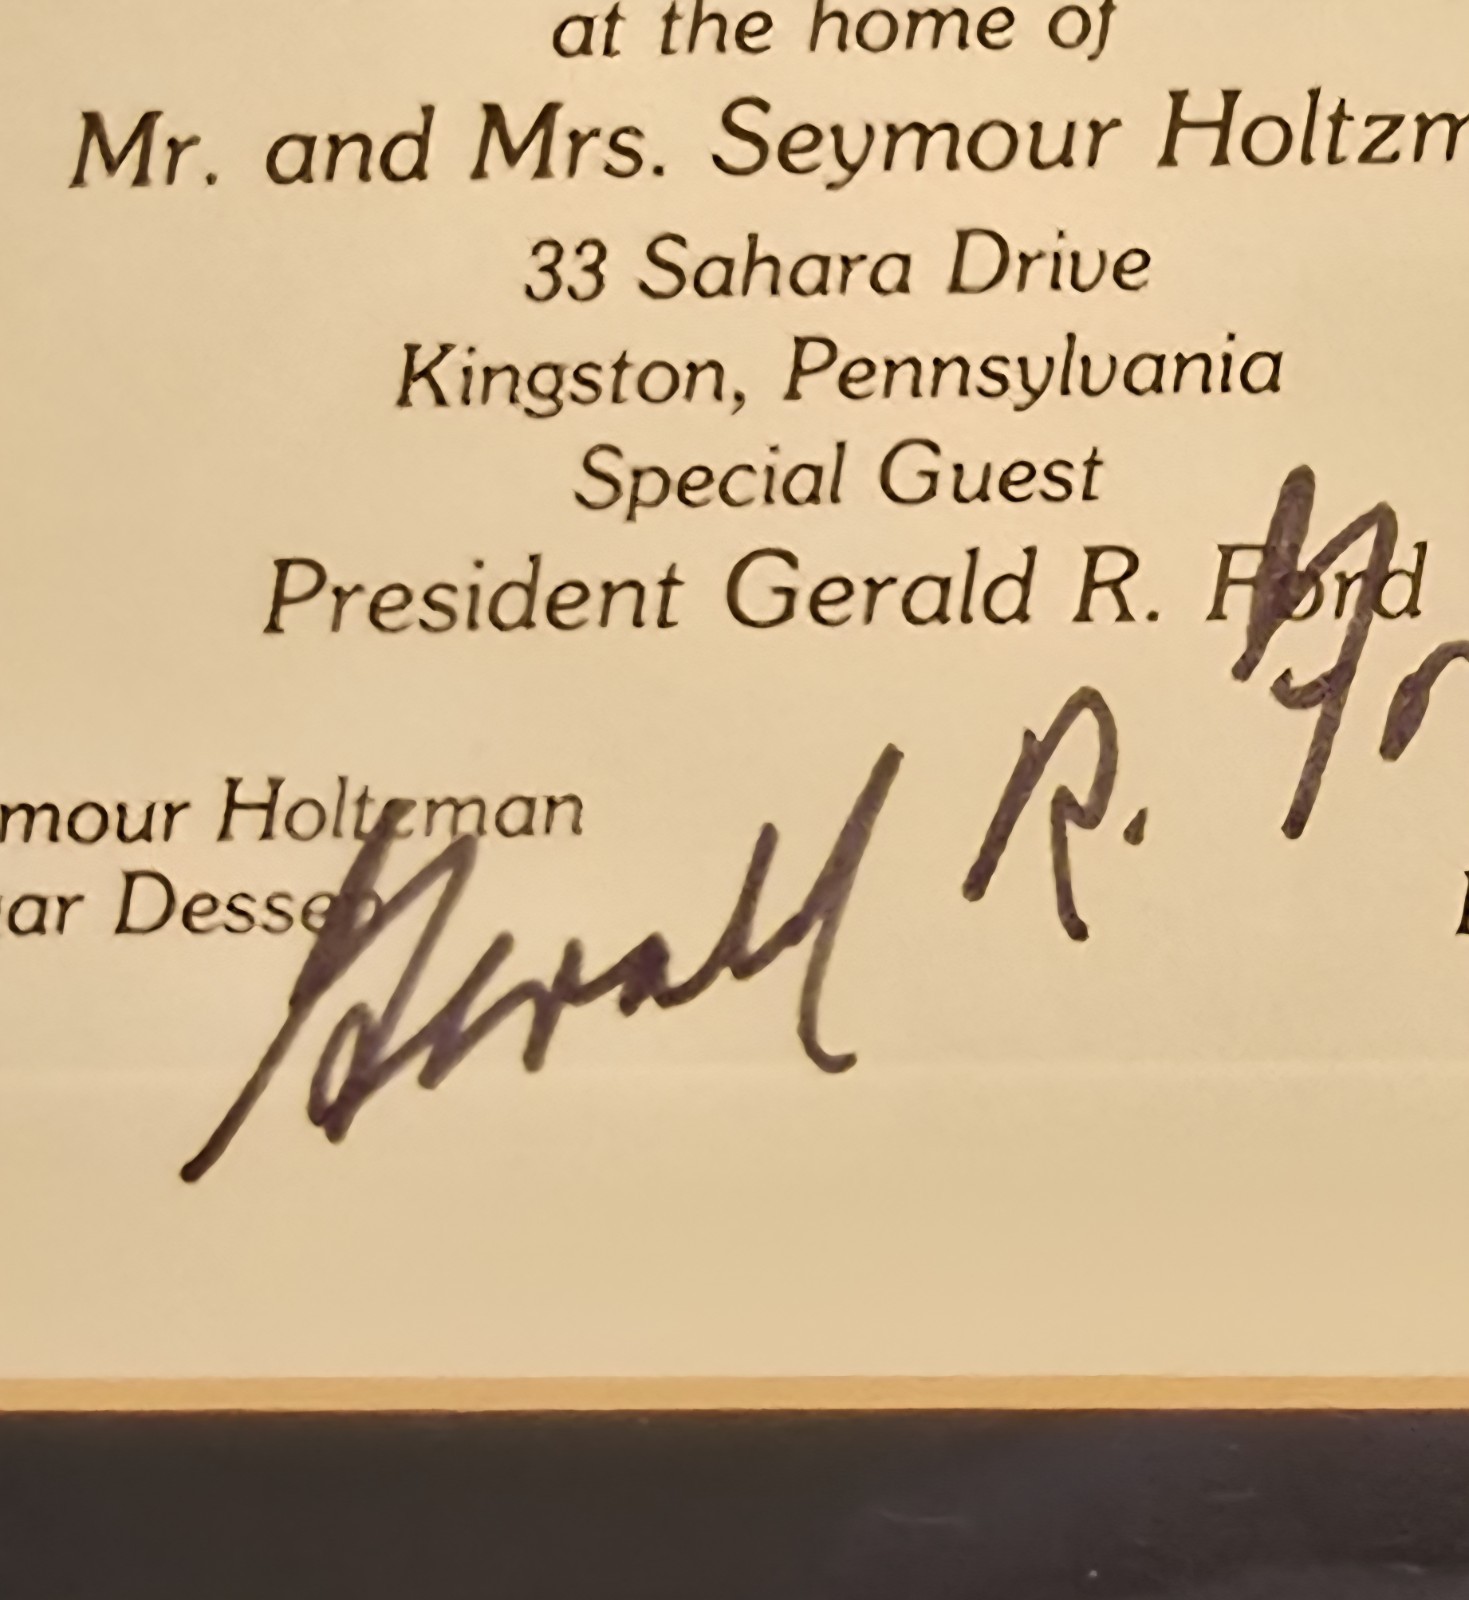 at the home of
Mr. and Mrs. Seymour Holtzm
33 Sahara Drive
Kingston, Pennsylvania
Special Guest
President Gerald R. Ford
mour Holtzman
ar Dessen
Gerald R. For